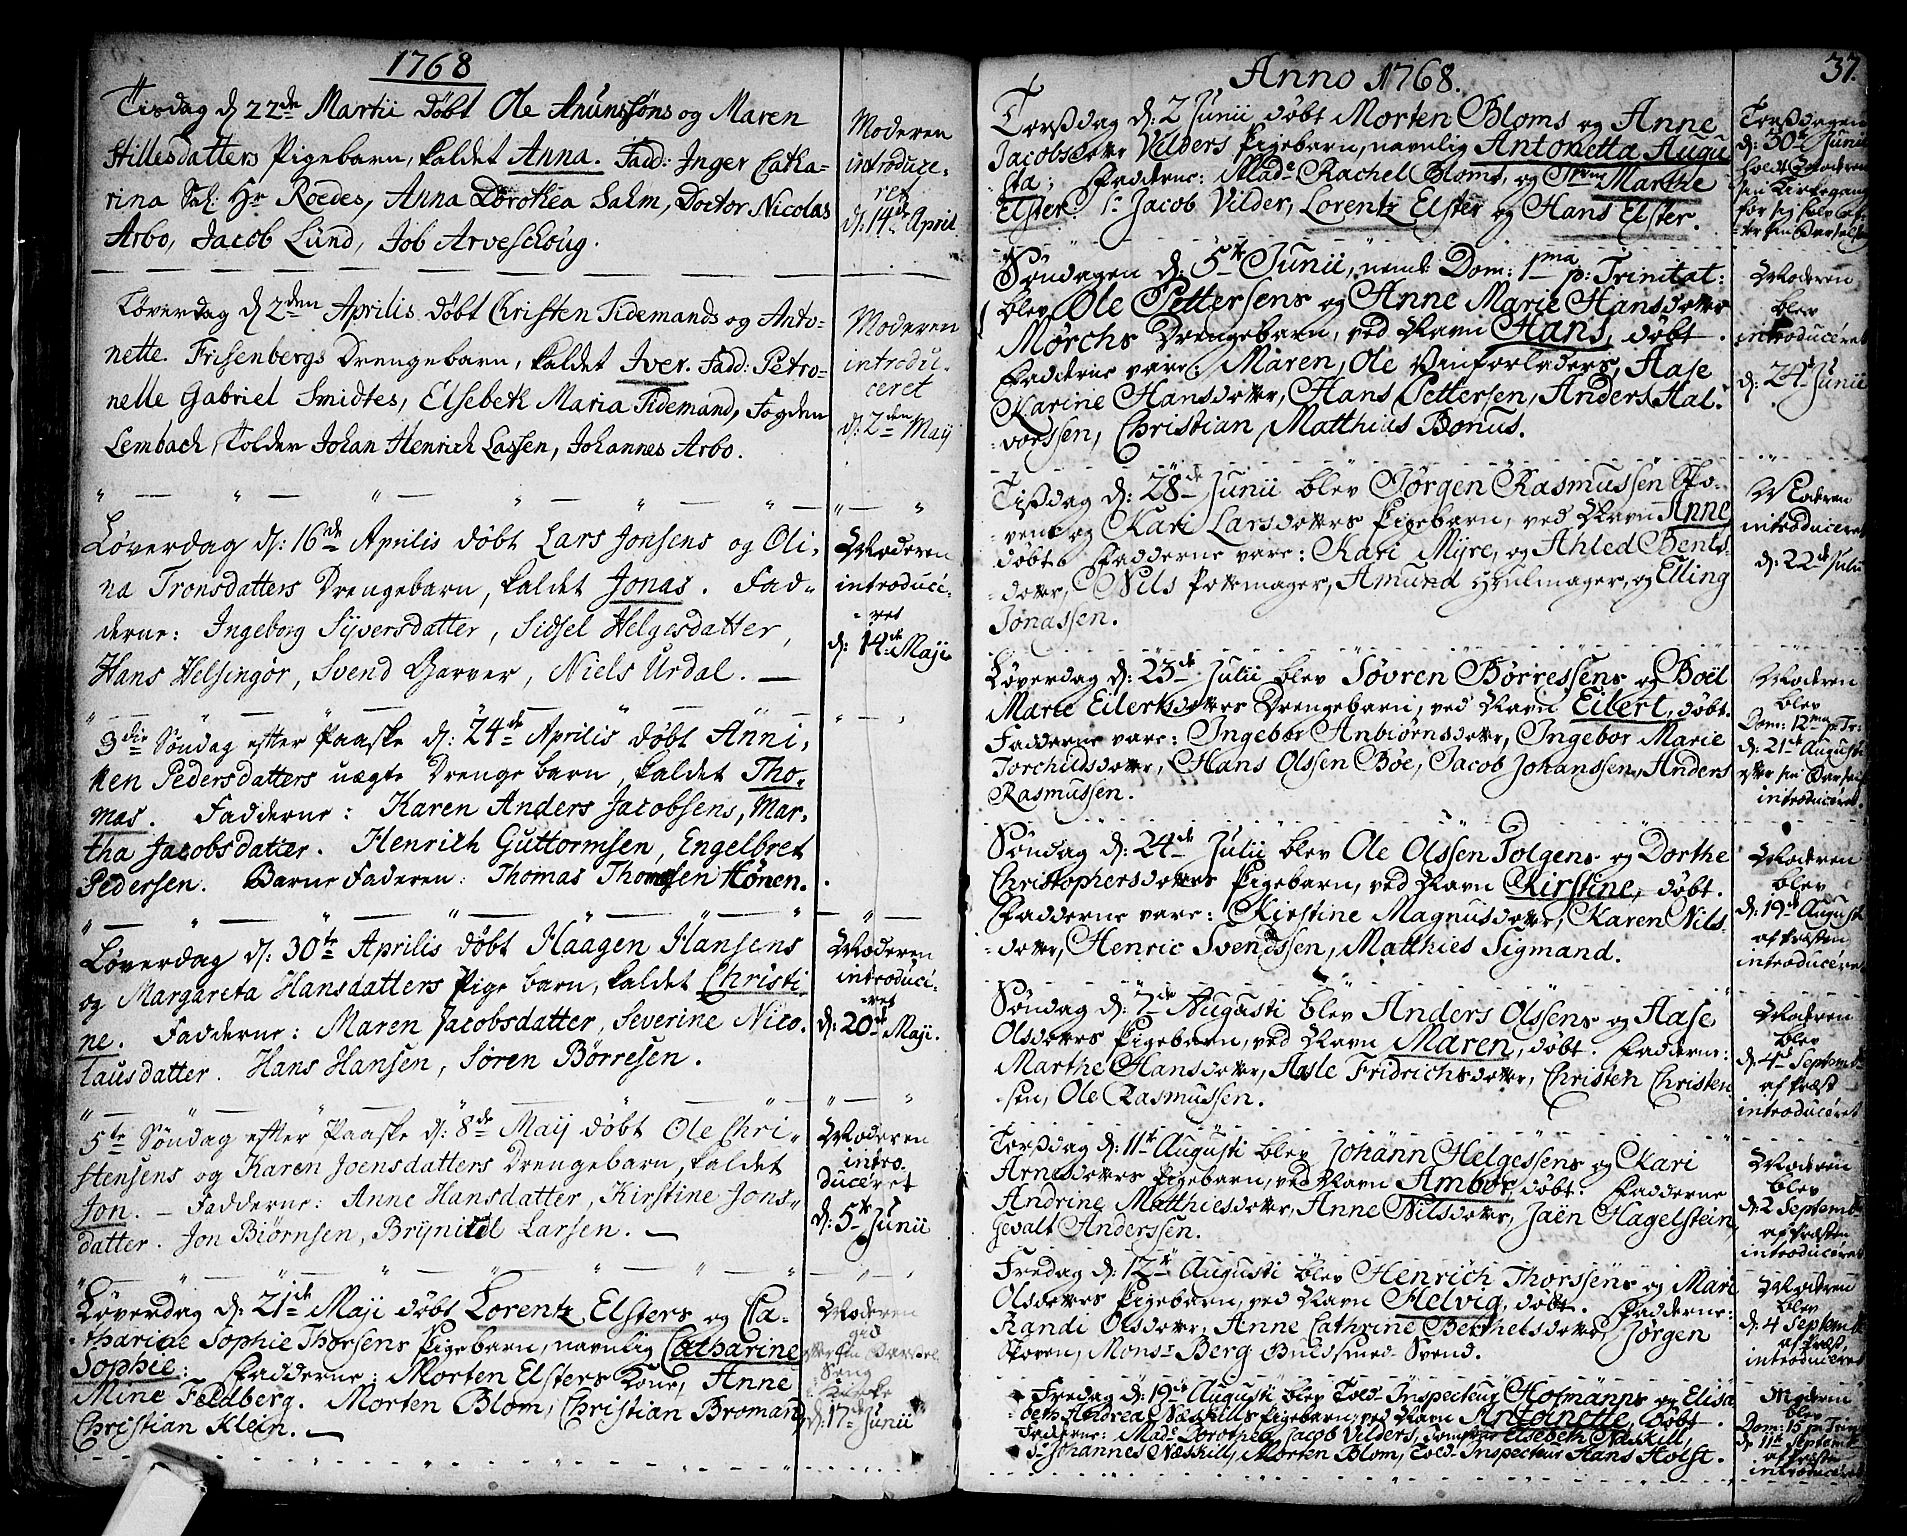 1768
Tisdag d. 22de Martii døbt Ole Anunssøns og Maren
Stillesdatters Pigebarn, kaldet Anna. Fadd: Inger Catha-
rina Sal: Hr Roedes, Anna Dorothea Salm, Doctor Nicolas
Arbo, Jacob Lund, Job Arveschoug.
Moderen
introduce-
ret
d: 14de April
Løverdag d. 2den Aprilis døbt Christen Tidemands og Anto-
nette Frisenbergs Drengebarn, kaldet Iver. Fadd: Petro-
nelle Gabriel Smidtes, Elsebeth Maria Tidemand, Fogden
Lembach, Tolder Johan Henrich Lassen, Johannes Arbo.
Moderen
introdu-
ceret
d: 2den Maij
Løverdag d: 16de Aprilis døbt Lars Jonsens og Oli-
na Tronsdatters Drengebarn, kaldet Jonas. Fad-
derne: Ingeborg Syversdatter, Sidsel Helgesdatter,
Hans Helsingør, Svend Garver, Niels Urdal.
Moderen
introduce-
ret
d: 14de Maji
3die Søndag efter Paaske d: 24de Aprilis døbt Anni-
ken Pedersdatters uægte Drenge barn, kaldet Tho-
mas. Fadderne: Karen Anders Jacobsens, Mar-
tha Jacobsdatter. Henrich Guttormsen, Engelbret
Pedersen. Barne Faderen: Thomas Thomesen Hønen.
Løverdag d: 30te Aprilis døbt Haagen Hansens
og Margareta Hansdatters Pige barn, kaldet Christi
ne. Fadderne: Maren Jacobsdatter, Severine Nico-
lausdatter. Hans Hansen, Søren Børresen.
Moderen
introduci-
ret
d: 20de Maji.
5te Søndag efter Paaske d: 8de Maij døbt Ole Chri-
stensens og Karen Joensdatters Drengebarn, kaldet
Jon. Fadderne: Anne Hansdatter, Kirstine Jons-
datter. Jon Biørnsen, Brynild Larsen.
Moderen
intro-
duceret
d: 5te Junii
Løverdag d: 21de Maji døbt Lorentz Elsters og Ca-
tharide Sophie Thorsens Pigebarn, navnlig Catharine
Sophie: Fadderne: Morten Elsters Kone, Anne
Mine Feldberg. Morten Blom, Christian Bromand,
Christian Klein.
Moderen
d: 17de Junii
Anno 1768.
37.
Torsdag d: 2 Junii døbt Morten Bloms og Anne
Jacobsdotter Vilders Pigebarn, navnlig Antonetta Augu
sta; Fadderne: Made Rachel Bloms, og Marthe
Elster. Sr Jacob Vilder, Lorentz Elster og Hans Elster.
Torsdagen
d: 30te Junii
holdt Moderen
sin Kirkegang
for sig selv ef-
Søndagen d: 5te Junii, neml: Dom: 1ma p: Trinitat:
blev Ole Pettersens og Anne Marie Hansdotter
Mørchs Drengebarn, ved Navn Hans, døbt.
Fadderne vare: Maren, Ole Vanforladers, Aase
Karine Hansdotter, Hans Pettersen, Anders Hal-
vorssen, Christian Matthias Bonus.
Moderen
blev
introduceret
d: 24de Junii
Tisdag d: 28de Junii blev Jørgen Rasmussen Sko-
vens og Kari Larsdotters Pigebarn, ved Navn Anne
døbt. Fadderne vare: Kari Myre, og Ahled Bents-
dotter, Nils Potemager, Amund Hiulmager, og Elling
Jonassen.
Moderen
introduceret
d: 22de Julii
Løverdag d: 23de Julii blev Søvren Børressens og Boel
Marie Eilertsdotters Drengebarn, ved Navn Eilert, døbt.
Fadderne vare: Ingebor Anbiørnsdotter, Ingebor Marie
Torchildsdotter, Hans Olssen Bøe, Jacob Johanssen, Anders
Rasmussen.
Moderen
blev
Dom: 12ma p: Tr:
d: 21de Augusti
efter sin Barsel
introduceret.
Søndag d: 24de Julii blev Ole Olssen Tolgens og Dorthe
Christophersdotters Pigebarn, ved Navn Kirstine, døbt.
Fadderne vare: Kirstine Magnusdotter, Karen Nils-
dotter, Henric Svendssen, Matthies Sigmand.
Moderen
blev
d: 19de Augusti
af Præsten
introduceret
Søndag d: 7de Augusti blev Anders Olssens og Aase
Olsdotters Pigebarn, ved Navn Maren, døbt. Fadderne:
Marthe Hansdotter, Aasle Fridrichsdotter, Christen Christen
sen, Ole Rasmussen.
Moderen
blev
d: 4de Septemb:
af Præst
introduceret
Torsdag d: 11te Augusti blev Johann Helgessens og Kari
Arnesdotters Pigebarn, ved Navn Ambor, døbt. Fadderne
Andrine Matthiesdotter, Anne Nilsdotter, Jaën Hagelstein,
Gevalt Anderssen.
Moderen
blev
d: 2 Septemb
af Præsten
introduceret
Fredag d: 12te Augusti blev Henrich Thorssens og Mari
Olsdotters Pigebarn, ved Navn Helvig, døbt. Fadderne:
Randi Olsdotter, Anne Cathrine Berthelsdotter, Jørgen
Skoven, Monsr Berg Buldsmed-Svend.
Moderen
blev
d: 4 Septemb
af Præst,
introduceret
Fredag d: 19de Augusti blev Told-Inspecteur Hofmanns og Elisa
beth Andrea Næskills Pigebarn, ved Navn Antoinette, døbt.
Fadderne: Made Dorothea Jacob Vilders, Jomfrue Elsebeth Næskill,
Sr Johannes Næskill, Morten Blom, Told-Inspecteur Hans Holst.
Moderen
blev
Dom: 15 p: Trin
d: 11te Septemb
af Præsten
introduceret